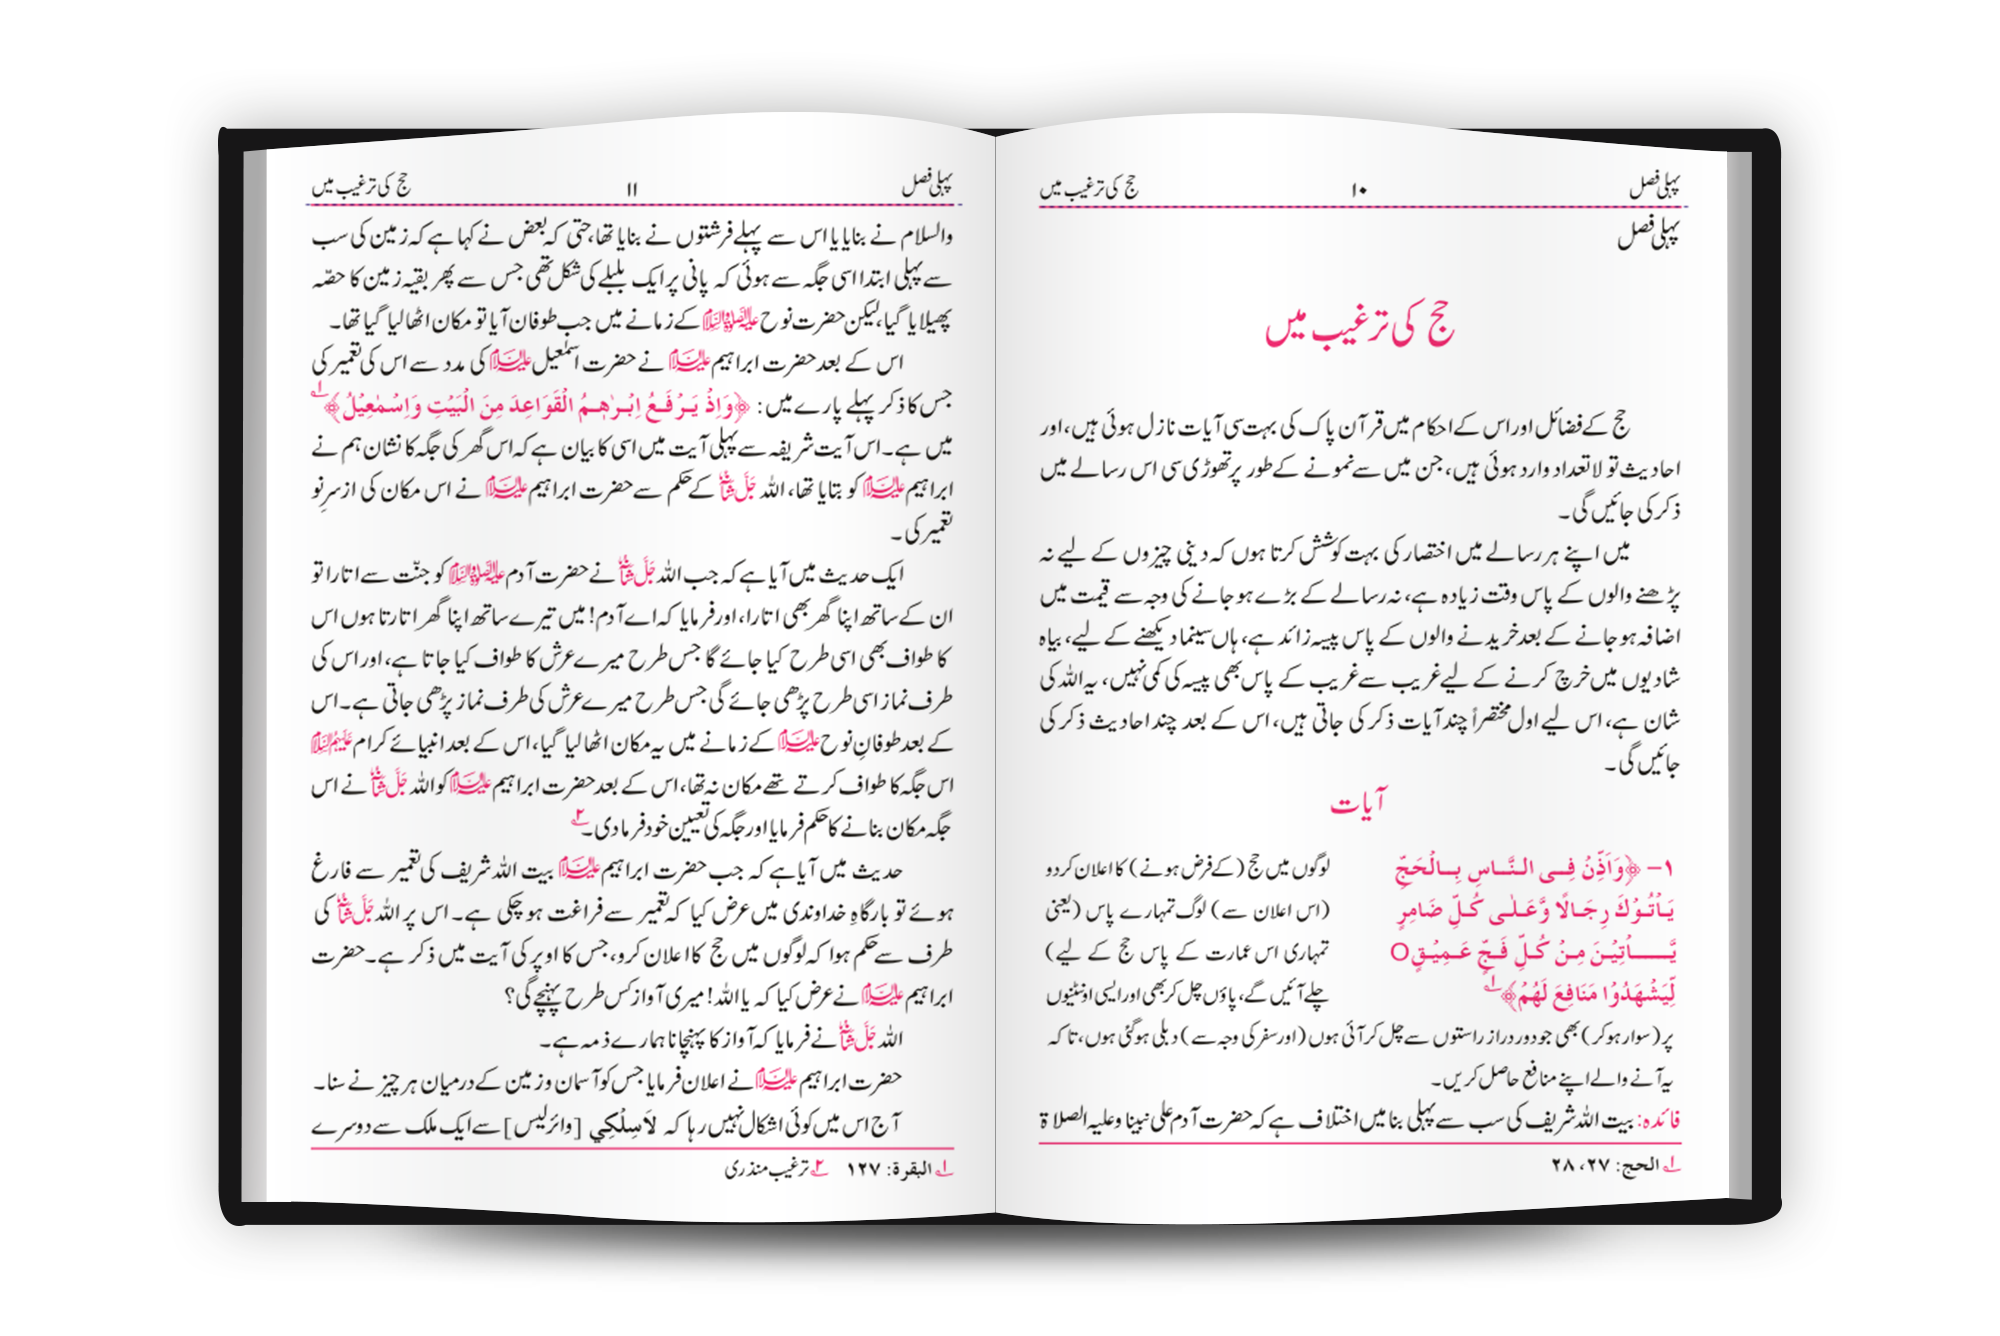 پہلی فصل ۱۰ حج کی ترغیب میں
پہلی فصل
حج کی ترغیب میں
حج کے فضائل اور اس کے احکام میں قرآن پاک کی بہت سی آیات نازل ہوئی ہیں، اور
احادیث تو لا تعداد وارد ہوئی ہیں، جن میں سے نمونے کے طور پر تھوڑی سی اس رسالے میں
ذکر کی جائیں گی۔
میں اپنے ہر رسالے میں اختصار کی بہت کوشش کرتا ہوں کہ دینی چیزوں کے لیے نہ
پڑھنے والوں کے پاس وقت زیادہ ہے، نہ رسالے کے بڑے ہو جانے کی وجہ سے قیمت میں
اضافہ ہو جانے کے بعد خریدنے والوں کے پاس پیسہ زائد ہے، ہاں سینما دیکھنے کے لیے، بیاہ
شادیوں میں خرچ کرنے کے لیے غریب سے غریب کے پاس بھی پیسہ کی کمی نہیں، یہ اللہ کی
شان ہے، اس لیے اول مختصراً چند آیات ذکر کی جاتی ہیں، اس کے بعد چند احادیث ذکر کی
جائیں گی۔
آیات
۱– ﴿وَاَذِّنْ فِی النَّاسِ بِالْحَجِّ
یَاْتُوْكَ رِجَالًا وَّعَلٰی كُلِّ ضَامِرٍ
یَّاْتِیْنَ مِنْ كُلِّ فَجٍّ عَمِیْقٍO
لِّیَشْهَدُوْا مَنَافِعَ لَهُمْ﴾ ۱؎
لوگوں میں حج (کے فرض ہونے) کا اعلان کر دو
(اس اعلان سے) لوگ تمہارے پاس (یعنی
تمہاری اس عمارت کے پاس حج کے لیے)
چلے آئیں گے، پاؤں چل کر بھی اور ایسی اونٹنیوں
پر (سوار ہو کر) بھی جو دور دراز راستوں سے چل کر آئی ہوں (اور سفر کی وجہ سے) دبلی ہو گئی ہوں، تا کہ
یہ آنے والے اپنے منافع حاصل کریں۔
فائدہ: بیت اللہ شریف کی سب سے پہلی بنا میں اختلاف ہے کہ حضرت آدم علی نبینا وعلیہ الصلاۃ
۱؎ الحج: ۲۷، ۲۸
پہلی فصل ۱۱ حج کی ترغیب میں
والسلام نے بنایا یا اس سے پہلے فرشتوں نے بنایا تھا، حتی کہ بعض نے کہا ہے کہ زمین کی سب
سے پہلی ابتدا اسی جگہ سے ہوئی کہ پانی پر ایک بلبلے کی شکل تھی جس سے پھر بقیہ زمین کا حصّہ
پھیلایا گیا، لیکن حضرت نوح علیہ الصلوۃ والسلام کے زمانے میں جب طوفان آیا تو مکان اٹھا لیا گیا تھا۔
اس کے بعد حضرت ابراہیم علیہ السلام نے حضرت اسمٰعیل علیہ السلام کی مدد سے اس کی تعمیر کی
جس کا ذکر پہلے پارے میں: ﴿وَاِذْ یَرْفَعُ اِبْرٰهِمُ الْقَوَاعِدَ مِنَ الْبَیْتِ وَاِسْمٰعِیْلُ﴾ ۱؎
میں ہے۔ اس آیت شریفہ سے پہلی آیت میں اسی کا بیان ہے کہ اس گھر کی جگہ کا نشان ہم نے
ابراہیم علیہ السلام کو بتایا تھا، اللہ جَلَّ شَانُہٗ کے حکم سے حضرت ابراہیم علیہ السلام نے اس مکان کی از سرِ نو
تعمیر کی۔
ایک حدیث میں آیا ہے کہ جب اللہ جَلَّ شَانُہٗ نے حضرت آدم علیہ الصلوۃ والسلام کو جنّت سے اتارا تو
ان کے ساتھ اپنا گھر بھی اتارا، اور فرمایا کہ اے آدم! میں تیرے ساتھ اپنا گھر اتارتا ہوں اس
کا طواف بھی اسی طرح کیا جائے گا جس طرح میرے عرش کا طواف کیا جاتا ہے، اور اس کی
طرف نماز اسی طرح پڑھی جائے گی جس طرح میرے عرش کی طرف نماز پڑھی جاتی ہے۔ اس
کے بعد طوفانِ نوح علیہ السلام کے زمانے میں یہ مکان اٹھا لیا گیا، اس کے بعد انبیائے کرام علیہم السلام
اس جگہ کا طواف کرتے تھے مکان نہ تھا، اس کے بعد حضرت ابراہیم علیہ السلام کو اللہ جَلَّ شَانُہٗ نے اس
جگہ مکان بنانے کا حکم فرمایا اور جگہ کی تعیین خود فرما دی۔ ۲؎
حدیث میں آیا ہے کہ جب حضرت ابراہیم علیہ السلام بیت اللہ شریف کی تعمیر سے فارغ
ہوئے تو بارگاہِ خداوندی میں عرض کیا کہ تعمیر سے فراغت ہو چکی ہے۔ اس پر اللہ جَلَّ شَانُہٗ کی
طرف سے حکم ہوا کہ لوگوں میں حج کا اعلان کرو، جس کا اوپر کی آیت میں ذکر ہے۔ حضرت
ابراہیم علیہ السلام نے عرض کیا کہ یا اللہ! میری آواز کس طرح پہنچے گی؟
اللہ جَلَّ شَانُہٗ نے فرمایا کہ آواز کا پہنچانا ہمارے ذمہ ہے۔
حضرت ابراہیم علیہ السلام نے اعلان فرمایا جس کو آسمان وزمین کے درمیان ہر چیز نے سنا۔
آج اس میں کوئی اشکال نہیں رہا کہ لاَسِلْكِي [وائرلیس] سے ایک ملک سے دوسرے
۱؎ البقرة: ۱۲۷ ۲؎ ترغیب منذری